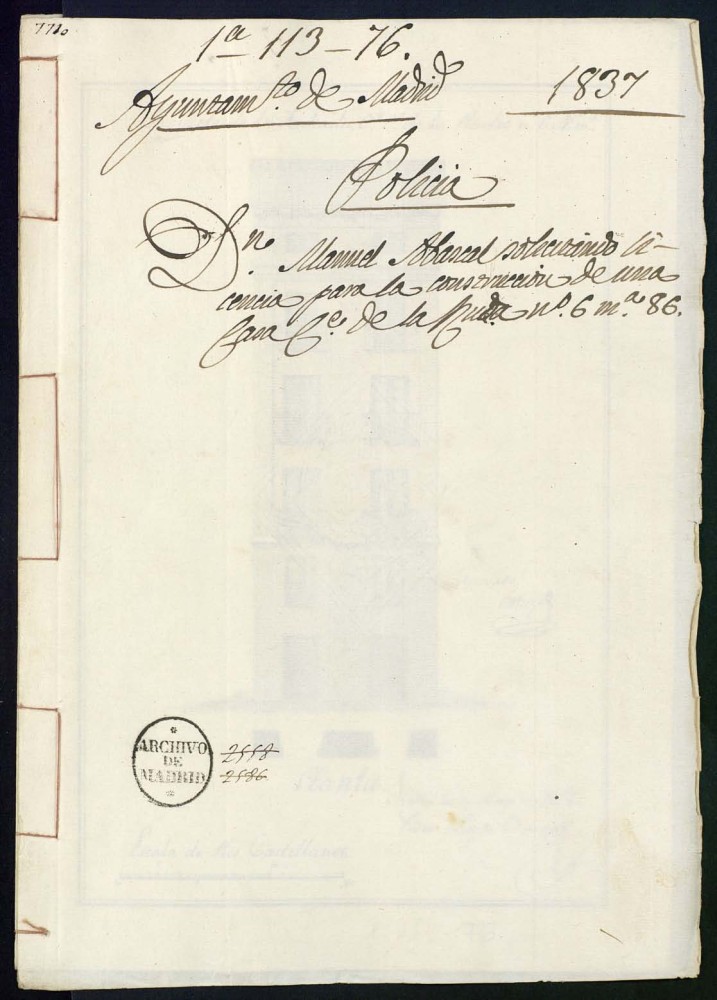 1ª 113-76.
Ayuntam.to de Madrid 1837
Policia
D.n Manuel Abascal solicitando li-
cencia para la construccion de una
Casa C.e de la Ruda nº. 6 m.a 86.
ARCHIVO
DE
MADRID
2558
2586
Planta
Escala de Pies Castellanos